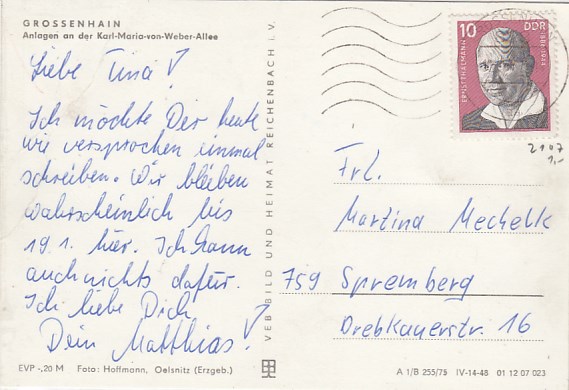 GROSSENHAIN
Anlagen an der Karl-Maria-von-Weber-Allee
Liebe Tina!
Ich möchte Dir heute
wie versprochen einmal
schreiben. Wir bleiben
wahrscheinlich bis
19.1. hier. Ich kann
auch nichts dafür.
Ich liebe Dich
Dein Matthias!
EVP -,20 M Foto: Hoffmann, Oelsnitz (Erzgeb.)
VEB BILD UND HEIMAT REICHENBACH I. V.
10 DDR
ERNST THÄLMANN
1886-1944
2107
1,-
Frl.
Martina Mechelk
759 Spremberg
Drebkauerstr. 16
A 1/B 255/75 IV-14-48 01 12 07 023